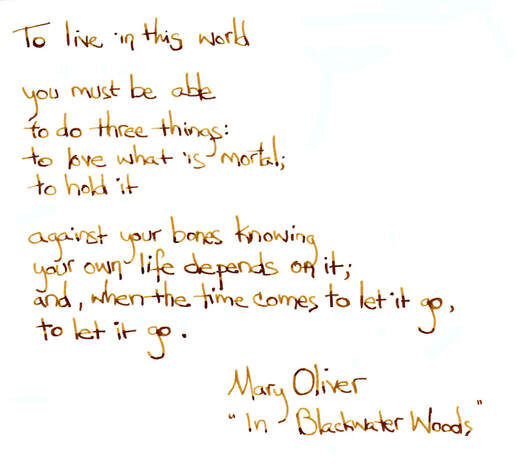 To live in this world
you must be able
to do three things:
to love what is mortal;
to hold it
against your bones knowing
your own life depends on it;
and, when the time comes to let it go,
to let it go.
Mary Oliver
"In Blackwater Woods"